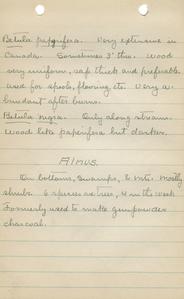 Betula papyrifera. Very extensive in
Canada. Sometimes 3' thro. Wood
very uniform, sap thick and preferable.
used for spools, flooring etc. Very a-
bundant after burns.
Betula nigra. Only along streams.
Wood like paperifera but darker.
Alnus.
On bottoms, swamps, & mts. Mostly
shrubs. 6 species as trees, 4 in the West.
Formerly used to make gunpowder
charcoal.